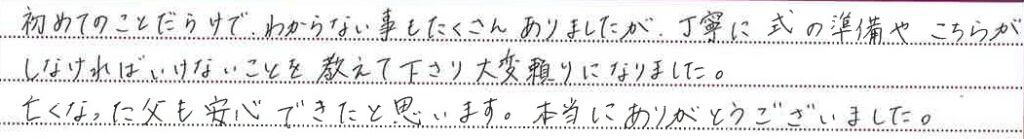 初めてのことだらけで、わからない事もたくさんありましたが、丁寧に式の準備やこちらが
しなければいけないことを教えて下さり大変頼りになりました。
亡くなった父も安心できたと思います。本当にありがとうございました。